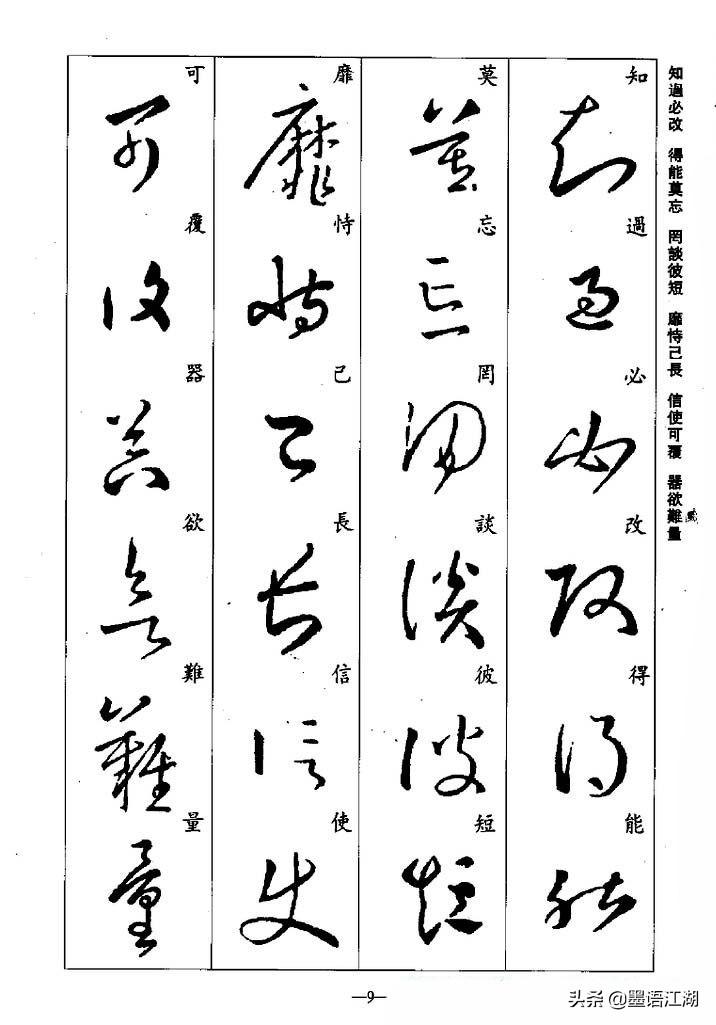 知過必改 得能莫忘 罔談彼短 靡恃己長 信使可覆 器欲難量
知過必改得能
莫忘罔談彼短
靡恃己長信使
可覆器欲難量
—9—
头条 @墨语江湖